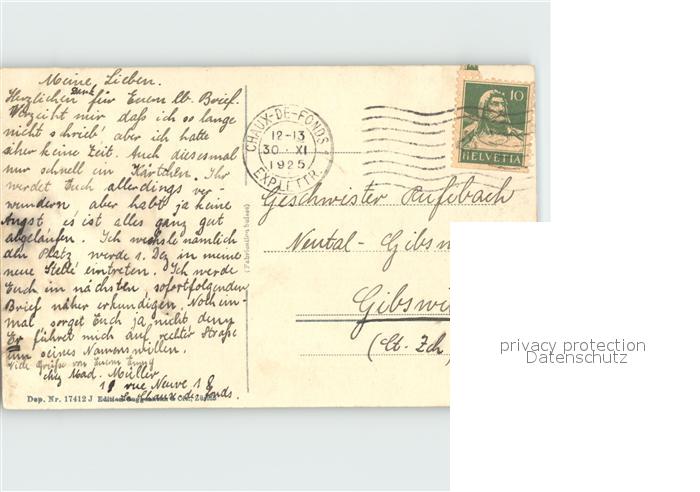 Meine Lieben.
Herzlichen Dank für Euern lb. Brief.
Verzeiht mir daß ich so lange
nicht schrieb' aber ich hatte
sicher keine Zeit. Auch diesesmal
nur schnell ein Kärtchen. Ihr
werdet Euch allerdings ver-
wundern aber habt ja keine
Angst es ist alles ganz gut
abgelaufen. Ich wechsle nämlich
den Platz werde 1. Dez in meine
neue Stelle eintreten. Ich werde
Euch im nächsten, sofortfolgenden
Brief näher erkundigen. Noch ein-
mal, sorget Euch ja nicht denn
Er führet mich auf rechter Straße
um seines Namens willen.
Viele Grüße von Eurem
chez Mad. Müller
19 rue Neuve 18
La Chaux-de-fonds.
Dep. Nr. 17412 J Edition & Co., Zürich
(Fabrication Suisse)
CHAUX-DE-FONDS 1
12-13
30. XI
1925
EXP. LETTR.
10
HELVETIA
Geschwister Rufibach
Neutal - Gibsw
Gibswi
(Ct. Zch.
privacy protection
Datenschutz